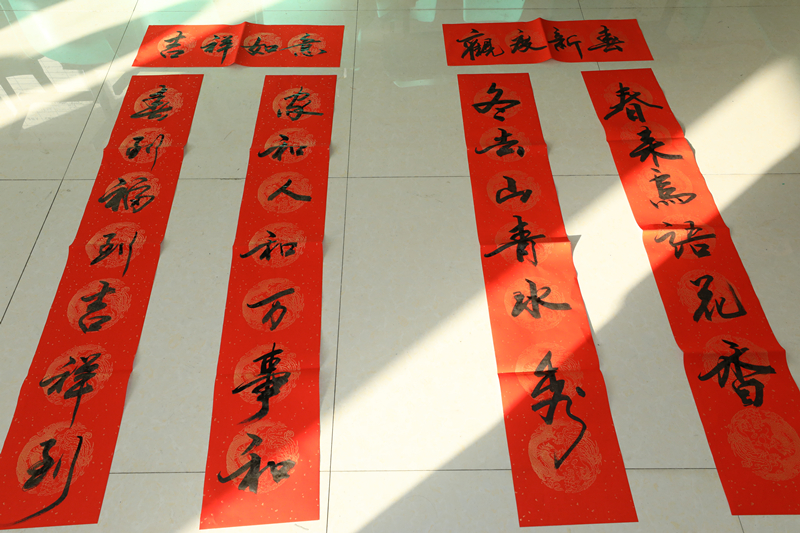 吉祥如意
家和人和万事和
喜到福到吉祥到
歡度新春
春来鳥語花香
冬去山青水秀